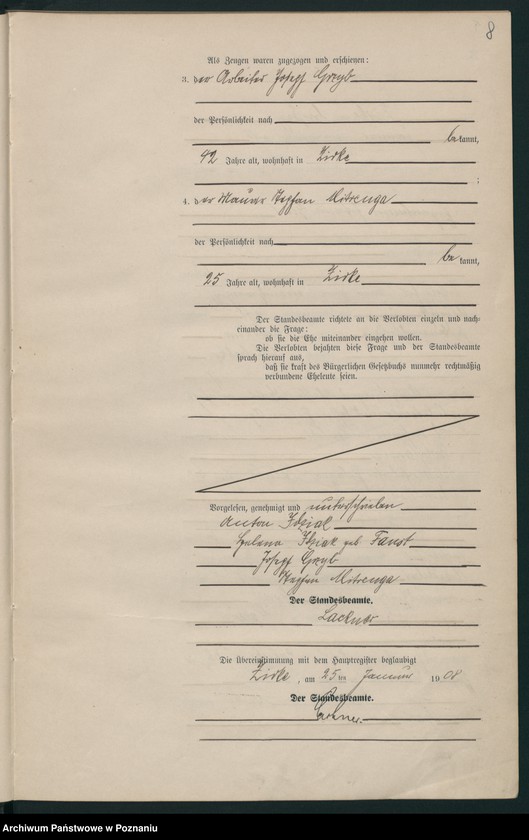 8
Als Zeugen waren zugezogen und erschienen:
3. der Arbeiter Josef Grzyb
der Persönlichkeit nach
bekannt,
42 Jahre alt, wohnhaft in Zirke
;
4. der Maurer Stephan Mitrenga
der Persönlichkeit nach
bekannt,
25 Jahre alt, wohnhaft in Zirke
Der Standesbeamte richtete an die Verlobten einzeln und nach-
einander die Frage:
ob sie die Ehe miteinander eingehen wollen.
Die Verlobten bejahten diese Frage und der Standesbeamte
sprach hierauf aus,
daß sie kraft des Bürgerlichen Gesetzbuchs nunmehr rechtmäßig
verbundene Eheleute seien.
Vorgelesen, genehmigt und unterschrieben
Anton Idziak
Helena Idziak geb. Faust
Josef Grzyb
Stephan Mitrenga
Der Standesbeamte.
Lackner
Die Übereinstimmung mit dem Hauptregister beglaubigt
Zirke, am 25 ten Januar 1908
Der Standesbeamte.
Archiwum Państwowe w Poznaniu